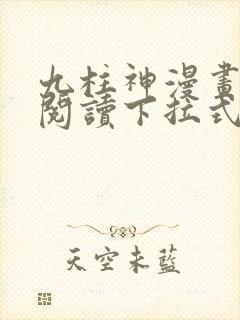 九柱神漫畫
閱讀下拉式
天空未藍